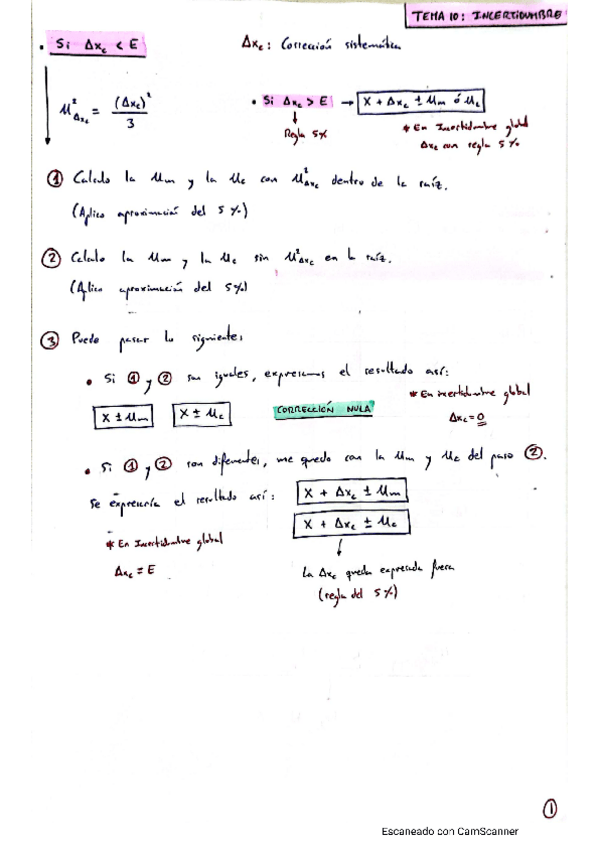 TEMA 10: INCERTIDUMBRE
• Si Δxc < E
Δxc: Corrección sistemática
u²Δxc = (Δxc)² / 3
• Si Δxc > E → X + Δxc ± um ó uc
Regla 5%
* En Incertidumbre global
Δxc con regla 5%
① Calculo la um y la uc con u²Δxc dentro de la raíz.
(Aplico aproximación del 5%)
② Calculo la um y la uc sin u²Δxc en la raíz.
(Aplico aproximación del 5%)
③ Puede pasar lo siguiente:
• Si ① y ② son iguales, expresamos el resultado así:
X ± um
X ± uc
CORRECCIÓN NULA
* En incertidumbre global
Δxc = 0
• Si ① y ② son diferentes, me quedo con la um y uc del paso ②.
Se expresaría el resultado así:
X + Δxc ± um
X + Δxc ± uc
* En Incertidumbre global
Δxc = E
La Δxc queda expresada fuera
(regla del 5%)
①
Escaneado con CamScanner